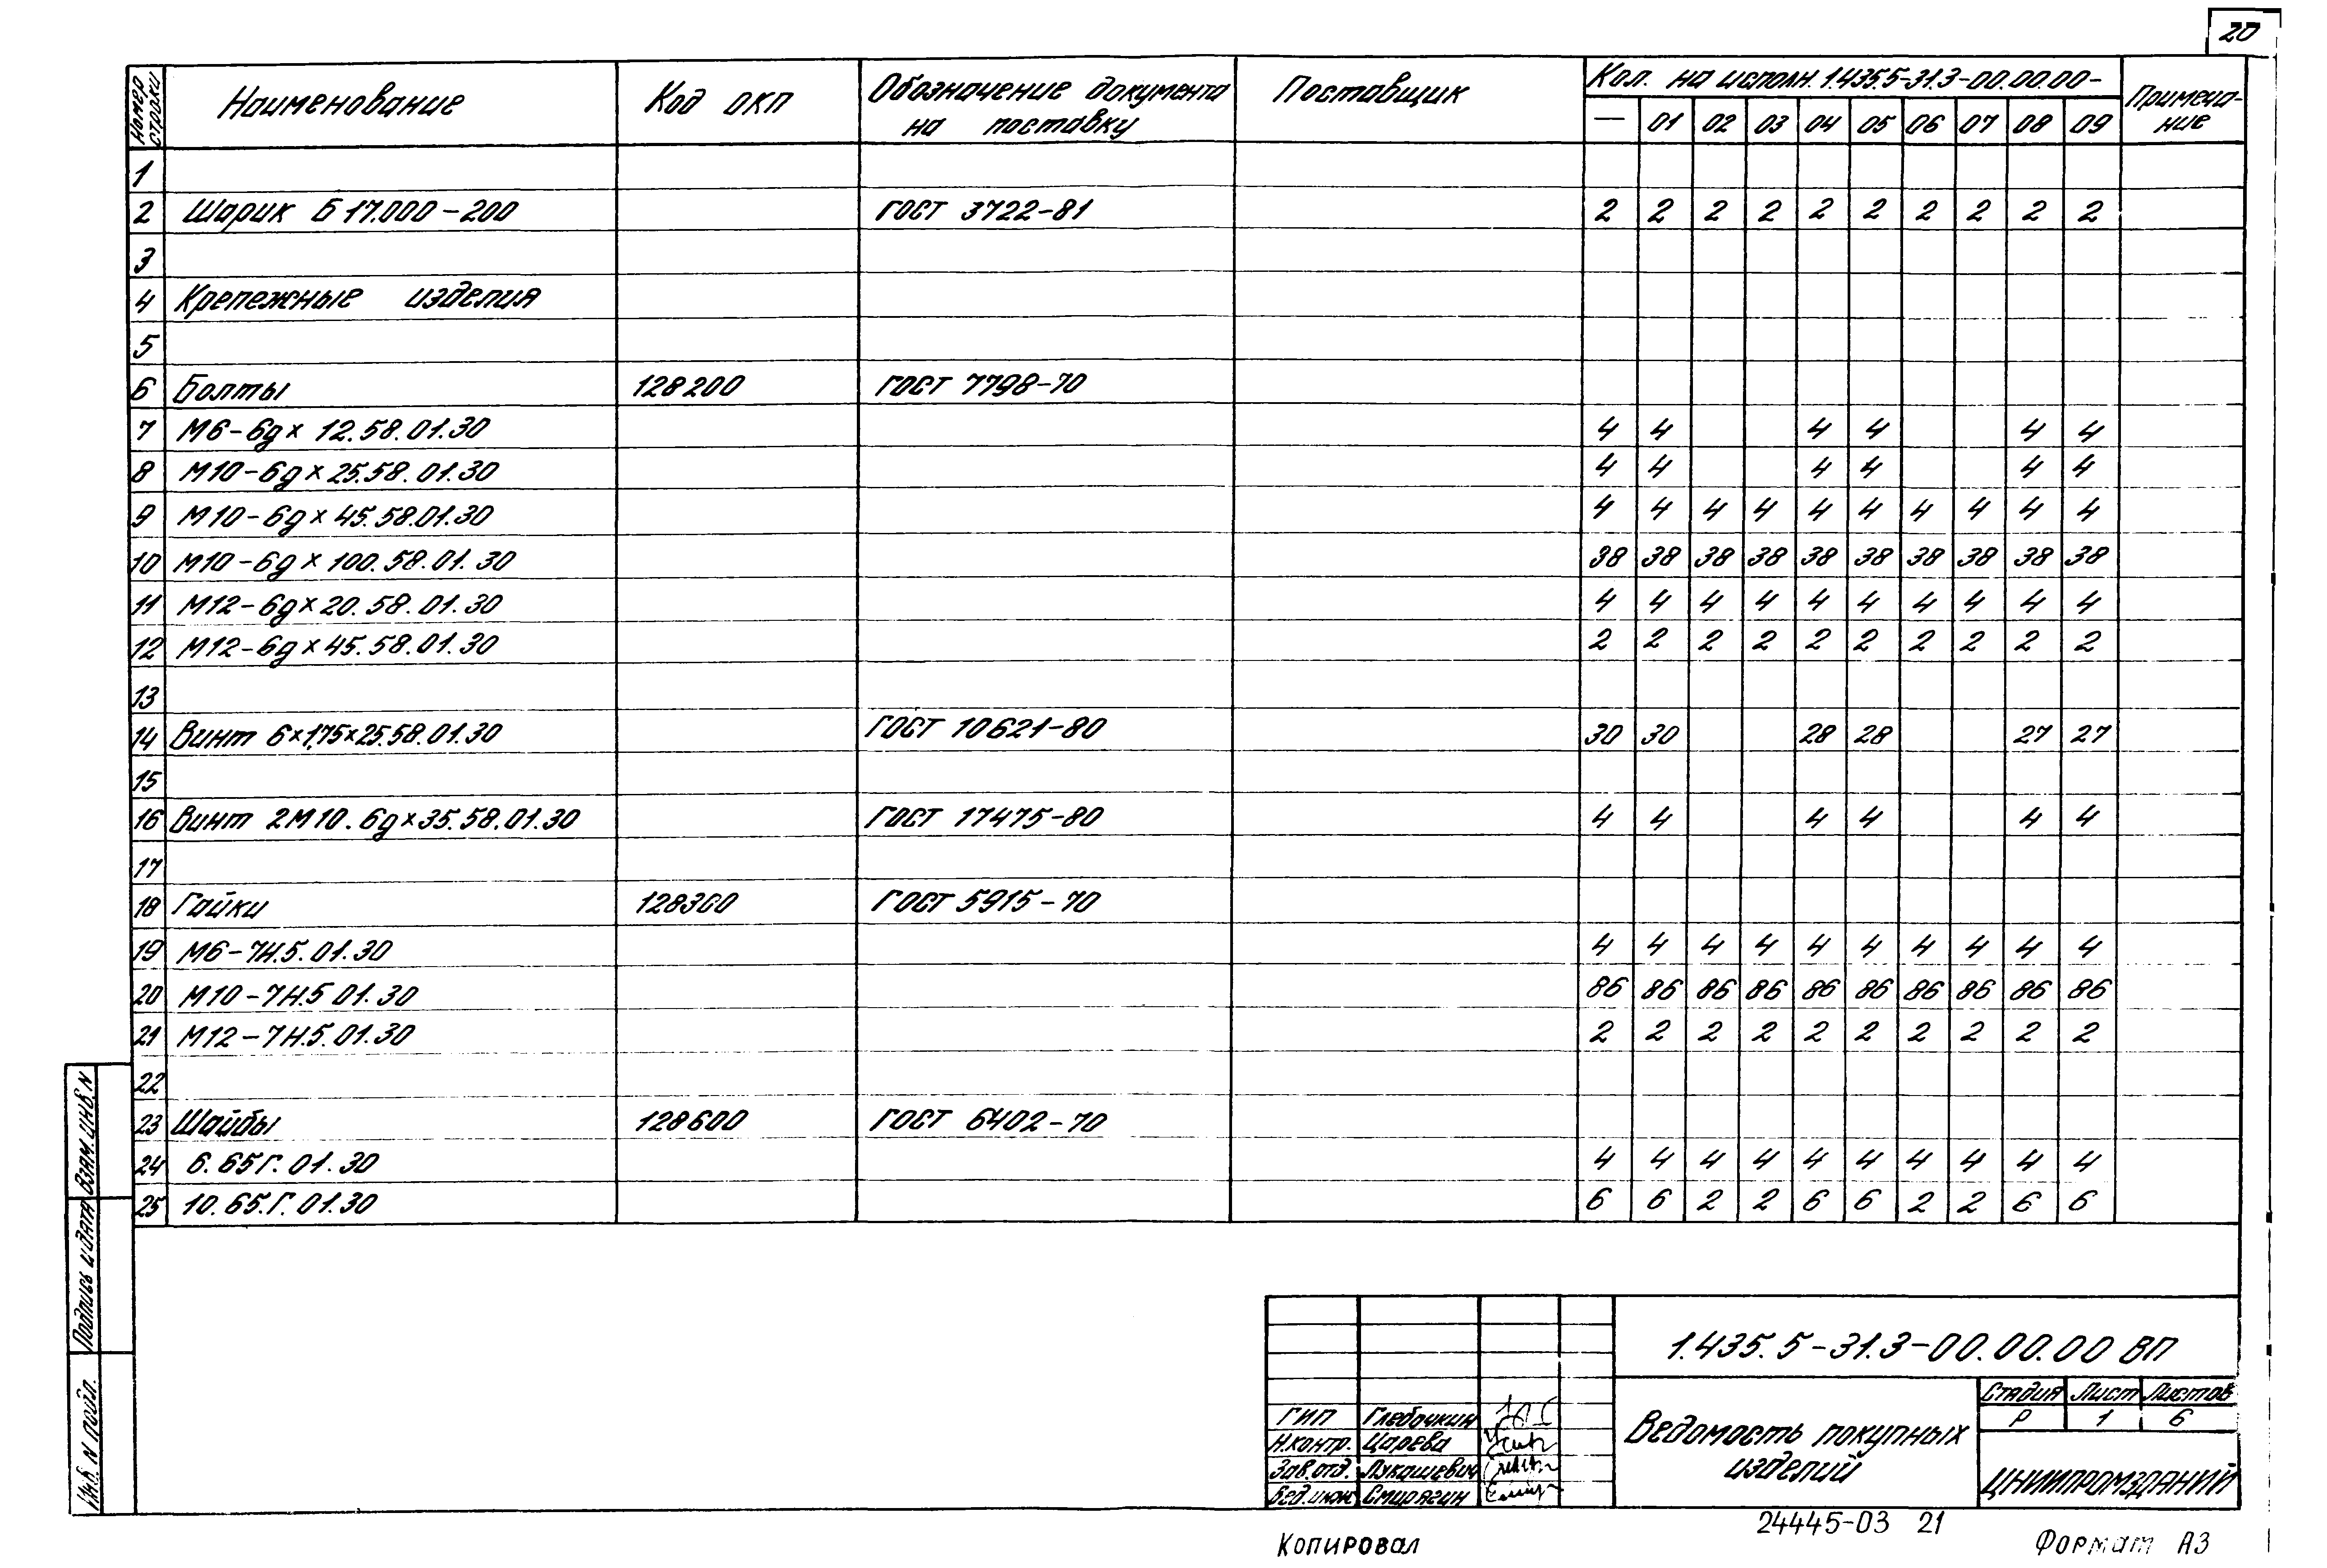 20
Номер строки Наименование Код ОКП Обозначение документа на поставку Поставщик Кол. на исполн. 1.435.5-31.3-00.00.00- Примечание
— 01 02 03 04 05 06 07 08 09
1
2 Шарик Б 17.000-200 ГОСТ 3722-81 2 2 2 2 2 2 2 2 2 2
3
4 Крепежные изделия
5
6 Болты 128200 ГОСТ 7798-70
7 М6-6gх 12.58.01.30 4 4 4 4 4 4
8 М10-6gх25.58.01.30 4 4 4 4 4 4
9 М10-6gх45.58.01.30 4 4 4 4 4 4 4 4 4 4
10 М10-6gх100.58.01.30 38 38 38 38 38 38 38 38 38 38
11 М12-6gх20.58.01.30 4 4 4 4 4 4 4 4 4 4
12 М12-6gх45.58.01.30 2 2 2 2 2 2 2 2 2 2
13
14 Винт 6х1,75х25.58.01.30 ГОСТ 10621-80 30 30 28 28 27 27
15
16 Винт 2М10.6gх35.58.01.30 ГОСТ 17475-80 4 4 4 4 4 4
17
18 Гайки 128300 ГОСТ 5915-70
19 М6-7Н.5.01.30 4 4 4 4 4 4 4 4 4 4
20 М10-7Н.5 01.30 86 86 86 86 86 86 86 86 86 86
21 М12-7Н.5.01.30 2 2 2 2 2 2 2 2 2 2
22
23 Шайбы 128600 ГОСТ 6402-70
24 6.65Г.01.30 4 4 4 4 4 4 4 4 4 4
25 10.65.Г.01.30 6 6 2 2 6 6 2 2 6 6
Взам. инв. N
Подпись и дата
Инв. N подл.
1.435.5-31.3-00.00.00 ВП
ГИП Глебочкин
Н.контр. Царева
Зав.отд. Лукашевич
Вед.инж. Смирягин
Ведомость покупных изделий
Стадия Лист Листов
Р 1 6
ЦНИИПРОМЗДАНИЙ
24445-03 21
Копировал
Формат А3